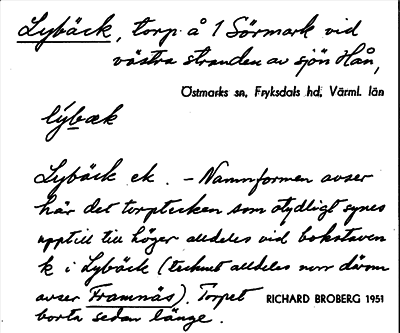 Lybäck, torp å 1 Sörmark vid
västra stranden av sjön Hån,
Östmarks sn, Fryksdals hd, Värml. län
lýbæk
Lybäck ek. – Namnformen avser
här det torptecken som otydligt synes
upptill till höger alldeles vid bokstaven
k i Lybäck (tecknet alldeles norr därom
avser Framnäs). Torpet
borta sedan länge.
RICHARD BROBERG 1951